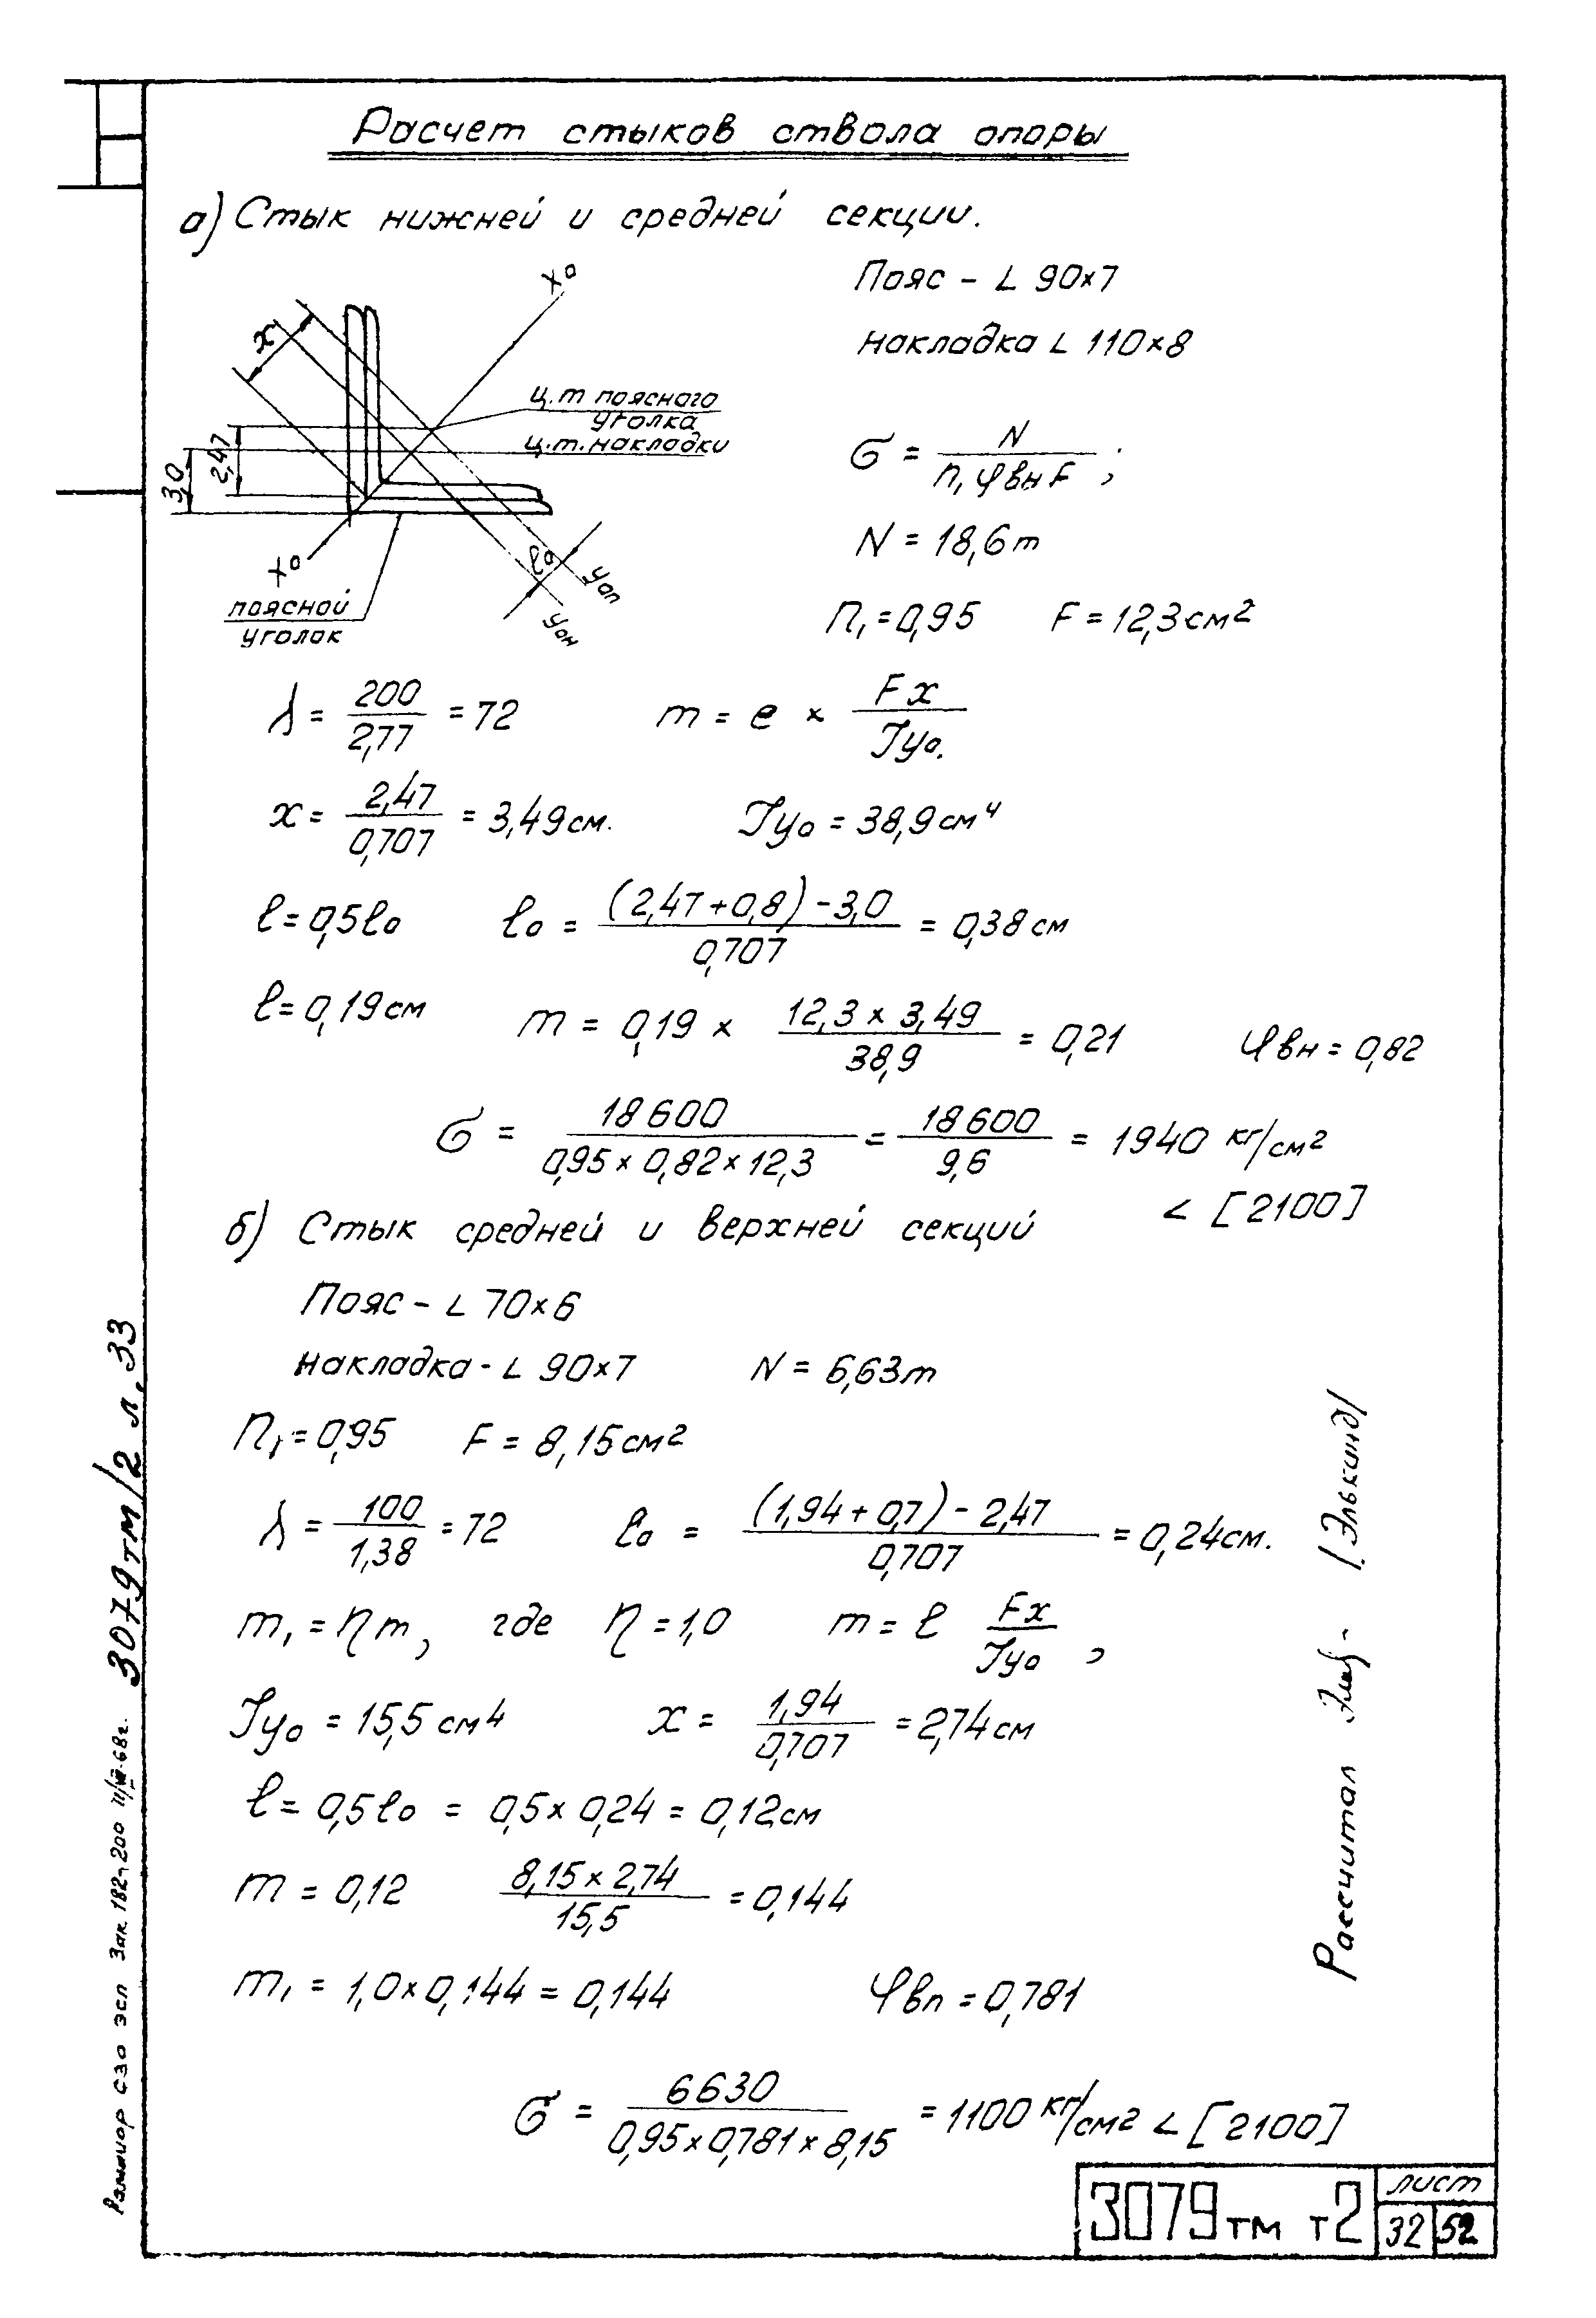 Расчет стыков ствола опоры
а) Стык нижней и средней секции.
Пояс - L 90×7
накладка L 110×8
x
x₀
ц.т поясного уголка
ц.т. накладки
2,47
3,0
x₀
поясной уголок
ℓ₀
y₀п
y₀н
σ = N / (n₁ φвн F) ;
N = 18,6 т
n₁ = 0,95 F = 12,3 см²
λ = 200 / 2,77 = 72 m = e × Fx / Jy₀.
x = 2,47 / 0,707 = 3,49 см. Jy₀ = 38,9 см⁴
ℓ = 0,5ℓ₀ ℓ₀ = (2,47 + 0,8) - 3,0 / 0,707 = 0,38 см
ℓ = 0,19 см m = 0,19 × 12,3 × 3,49 / 38,9 = 0,21 φвн = 0,82
σ = 18600 / (0,95 × 0,82 × 12,3) = 18600 / 9,6 = 1940 кг/см²
< [2100]
б) Стык средней и верхней секций
Пояс - L 70×6
накладка - L 90×7 N = 6,63 т
n₁ = 0,95 F = 8,15 см²
λ = 100 / 1,38 = 72 ℓ₀ = (1,94 + 0,7) - 2,47 / 0,707 = 0,24 см.
m₁ = η m, где η = 1,0 m = ℓ Fx / Jy₀ ,
Jy₀ = 15,5 см⁴ x = 1,94 / 0,707 = 2,74 см
ℓ = 0,5ℓ₀ = 0,5 × 0,24 = 0,12 см
m = 0,12 8,15 × 2,74 / 15,5 = 0,144
m₁ = 1,0 × 0,144 = 0,144 φвп = 0,781
σ = 6630 / (0,95 × 0,781 × 8,15) = 1100 кг/см² < [2100]
Рассчитал /Элькинд/
3079тм/2 л.33
СЗО ЭСП Зак 182-200
3079тм т2
лист
32 52